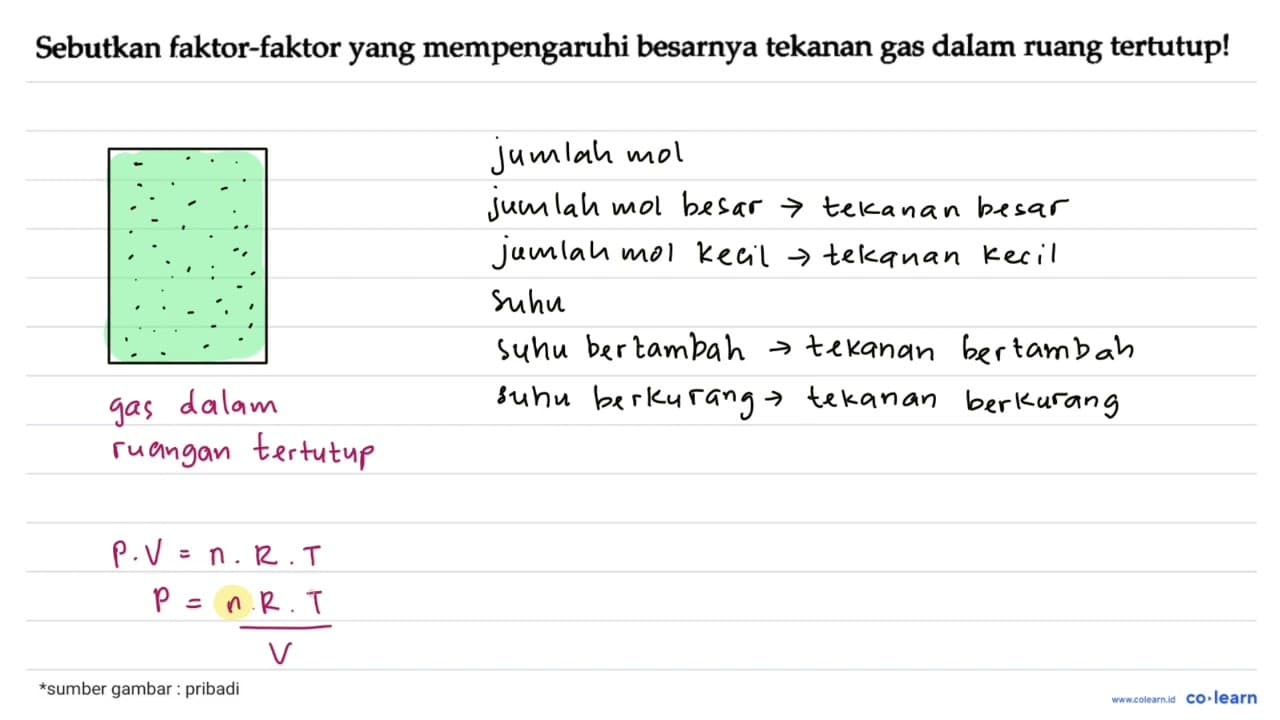 Sebutkan faktor-faktor yang mempengaruhi besarnya tekanan gas dalam ruang tertutup!
jumlah mol
jumlah mol besar → tekanan besar
jumlah mol kecil → tekanan kecil
suhu
suhu bertambah → tekanan bertambah
suhu berkurang → tekanan berkurang
gas dalam
ruangan tertutup
P.V = n.R.T
P = n.R.T
V
*sumber gambar : pribadi
www.colearn.id co·learn